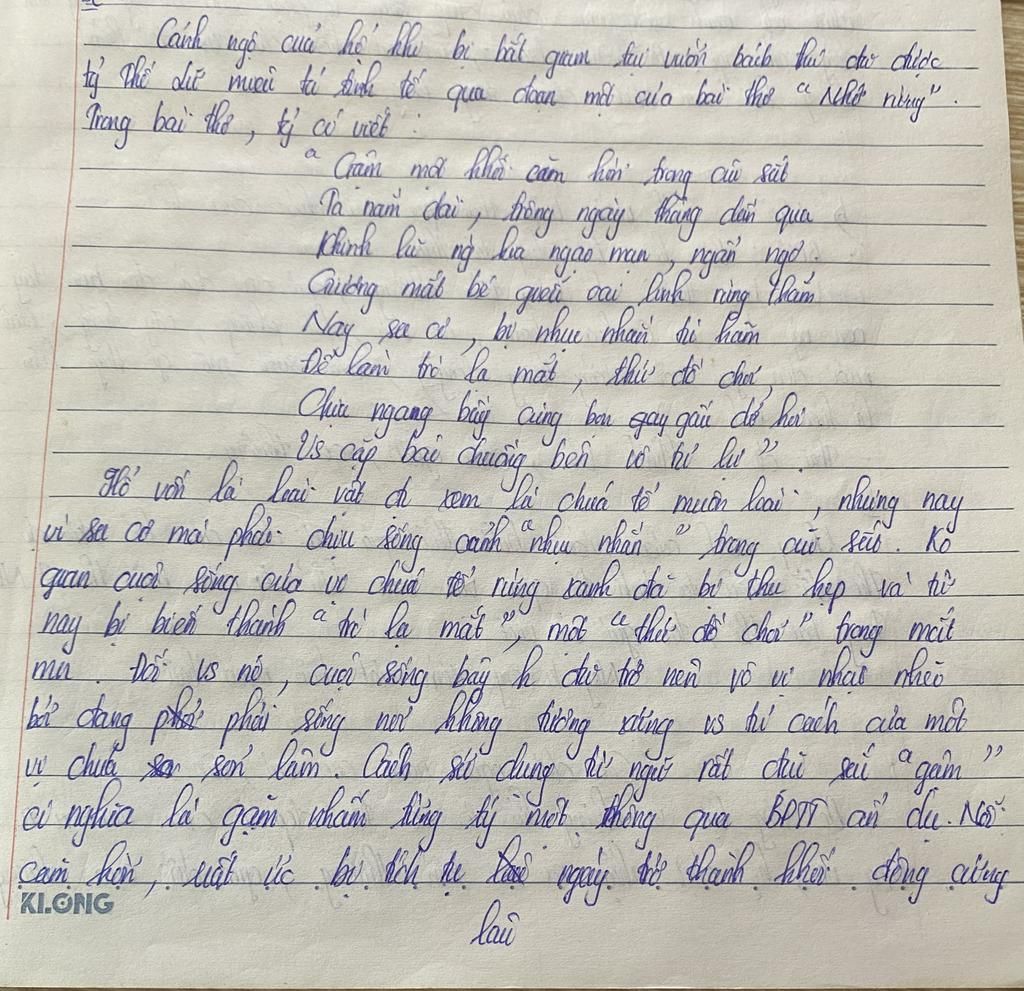 Cảnh ngộ của hổ khi bị bắt giam tại vườn bách thú đã được
Thế Lữ miêu tả tinh tế qua đoạn một của bài thơ "Nhớ rừng".
Trong bài thơ, có viết:
"Gậm một khối căm hờn trong cũi sắt
Ta nằm dài, trông ngày tháng dần qua
Khinh lũ ng kia ngạo mạn, ngẩn ngơ.
Giương mắt bé giễu oai linh rừng thẳm
Nay sa cơ, bị nhục nhằn tù hãm
Để làm trò lạ mắt, thứ đồ chơi,
Chịu ngang bầy cùng bọn gấu dở hơi
Vs cặp báo chuồng bên vô tư lự".
Hổ vốn là loài vật đc xem là chúa tể muôn loài, nhưng nay
vì sa cơ mà phải chịu sống cảnh "nhục nhằn" trong cũi sắt. Ko
gian cuộc sống của vị chúa tể rừng xanh đã bị thu hẹp và từ
nay bị biến thành "trò lạ mắt", một "thứ đồ chơi" trong mắt
mn. Đối vs nó, cuộc sống bây h đã trở nên vô vị nhạt nhẽo
bởi đang phải sống nơi không tương xứng vs tư cách của một
vị chúa sơn lâm. Cách sử dụng từ ngữ rất đặc sắc "gậm"
có nghĩa là gặm nhấm từng tý một thông qua BPTT ẩn dụ. Nỗi
căm hờn, uất ức bị tích tụ ngày trở thành khối đông cứng
lại
KLONG